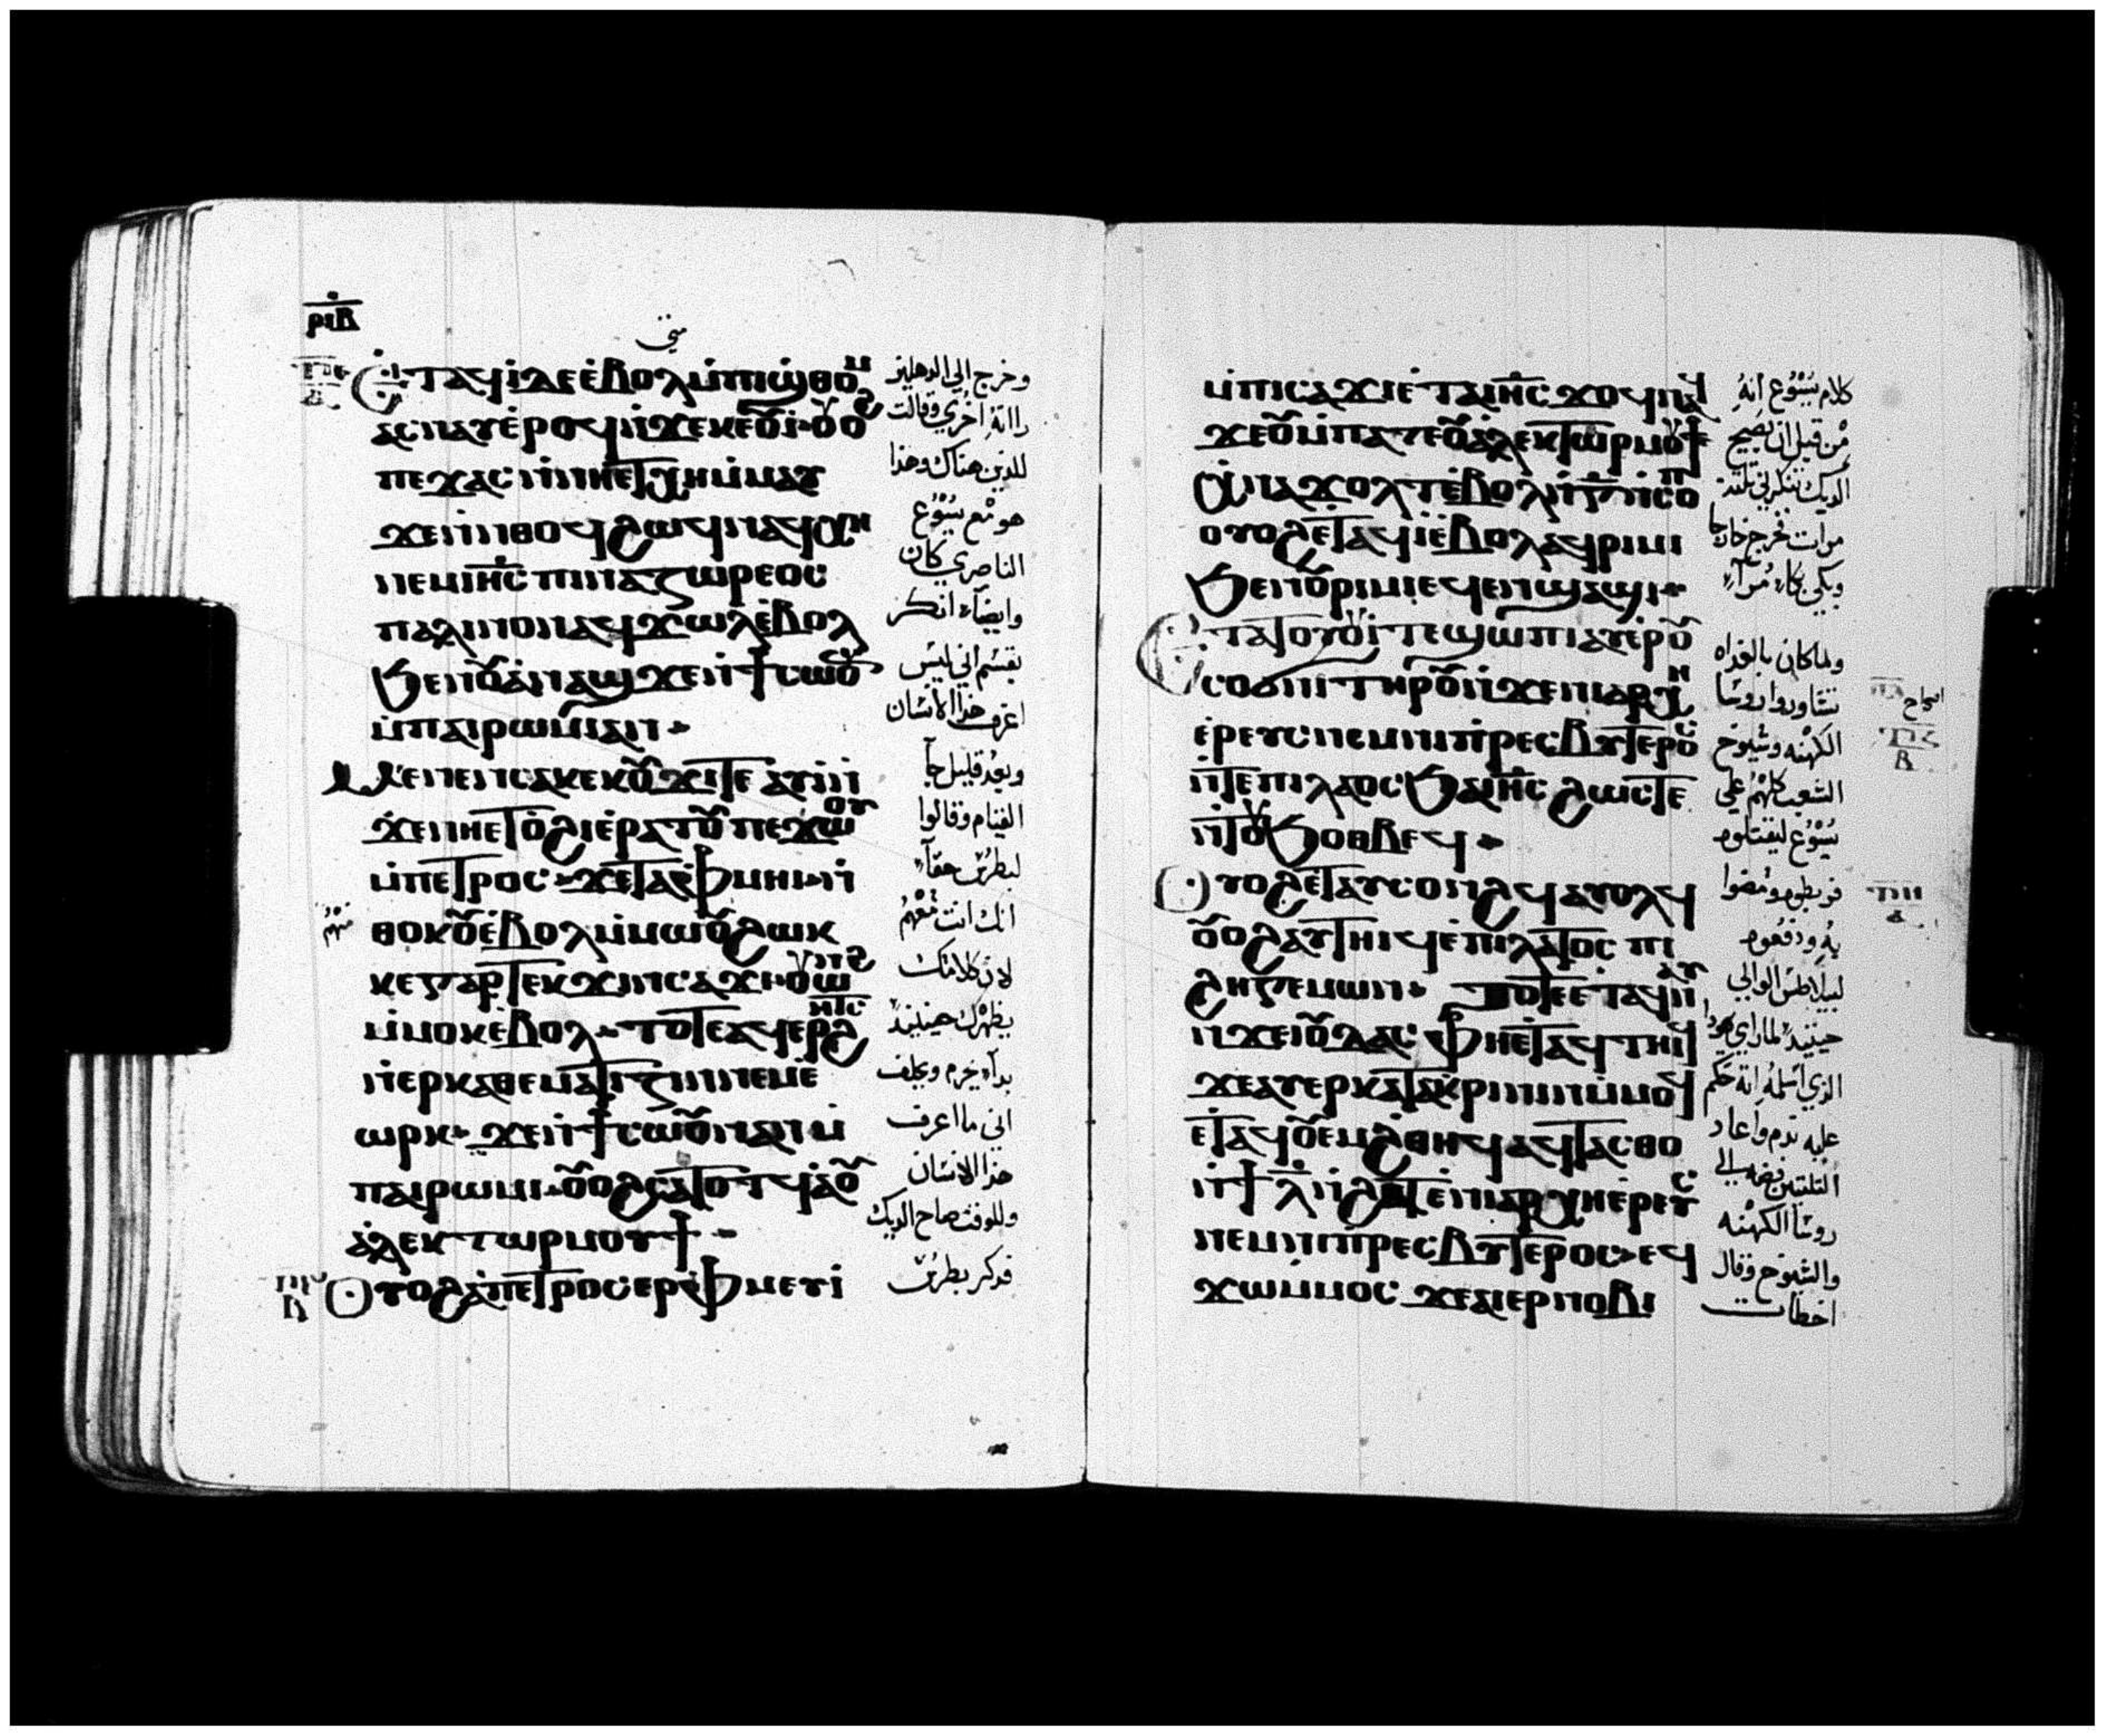 ⲣⲓⲃ
متى
ⲉⲧⲁϥⲓ ⲇⲉ ⲉⲃⲟⲗ ⲙⲡⲓϣⲑⲟⲙ
ⲁⲥⲛⲁⲩ ⲉⲣⲟϥ ⲛϫⲉ ⲕⲉⲟⲩⲓ ⲟⲩⲟϩ
ⲡⲉϫⲁⲥ ⲛⲛⲏⲉⲧⲭⲏ ⲙⲙⲁⲩ
ϫⲉ ⲛⲑⲟϥ ϩⲱϥ ⲛⲁϥⲭⲏ
ⲛⲉⲙ ⲓⲏⲥ ⲡⲓⲛⲁⲍⲱⲣⲉⲟⲥ
ⲡⲁⲗⲓⲛ ⲟⲛ ⲁϥϫⲱⲗ ⲉⲃⲟⲗ
ϧⲉⲛ ⲟⲩⲁⲛⲁϣ ϫⲉ ⲛϯⲥⲱⲟⲩⲛ
ⲙⲡⲁⲓⲣⲱⲙⲓ ⲁⲛ
ⲙⲉⲛⲉⲛⲥⲁ ⲕⲉⲕⲟⲩϫⲓ ⲇⲉ ⲁⲩⲓ ⲛ
ϫⲉ ⲛⲏⲉⲧⲟϩⲓ ⲉⲣⲁⲧⲟⲩ ⲡⲉϫⲱⲟⲩ
ⲙⲡⲉⲧⲣⲟⲥ ϫⲉ ⲧⲁⲫⲙⲏⲓ ⲛ
ⲑⲟⲕ ⲟⲩⲉⲃⲟⲗ ⲙⲙⲱⲟⲩ ϩⲱⲕ
ⲕⲉ ⲅⲁⲣ ⲧⲉⲕϫⲓⲛⲥⲁϫⲓ ⲟⲩⲱⲛϩ
ⲙⲙⲟⲕ ⲉⲃⲟⲗ ⲧⲟⲧⲉ ⲁϥⲉⲣϩⲏⲧⲥ
ⲛⲉⲣⲕⲁⲑⲉⲙⲁⲧⲓⲍⲓⲛ ⲛⲉⲙ ⲉ
ⲱⲣⲕ ϫⲉ ⲛϯⲥⲱⲟⲩⲛ ⲁⲛ ⲙ
ⲡⲁⲓⲣⲱⲙⲓ ⲟⲩⲟϩ ⲥⲁⲧⲟⲧϥ ⲁⲟⲩ
ⲁⲗⲉⲕⲧⲱⲣ ⲙⲟⲩϯ
ⲟⲩⲟϩ ⲁⲡⲉⲧⲣⲟⲥ ⲉⲣⲫⲙⲉⲩⲓ
وخرج الى الدهليز
راته اخرى وقالت
للذين هناك وهذا
هو مع يسوع
الناصري كان
وايضاً انكر
بقسم اني ليس
اعرف هذا الانسان
وبعد قليل جا
القيام وقالوا
لبطرس حقاً
انك انت معهم
منهم
لان كلامك
يظهرك حينيذ
بدا يحرم ويحلف
اني ما اعرف
هذا الانسان
وللوقت صاح الديك
فذكر بطرس
ⲙⲡⲓⲥⲁϫⲓ ⲉⲧⲁ ⲓⲏⲥ ϫⲟϥ ⲛⲁϥ
ϫⲉ ⲟⲩ ⲙⲡⲁⲧⲉ ⲟⲩⲁⲗⲉⲕⲧⲱⲣ ⲙⲟⲩϯ
ⲭⲛⲁϫⲟⲗⲧ ⲉⲃⲟⲗ ⲛⲅ ⲛⲥⲟⲡ
ⲟⲩⲟϩ ⲉⲧⲁϥⲓ ⲉⲃⲟⲗ ⲁϥⲣⲓⲙⲓ
ϧⲉⲛ ⲟⲩⲣⲓⲙⲓ ⲉϥⲉⲛϣⲁϣⲓ
ⲉⲧⲁ ⲧⲟⲟⲩⲓ ⲇⲉ ϣⲱⲡⲓ ⲁⲩⲉⲣⲟⲩ
ⲥⲟϭⲛⲓ ⲧⲏⲣⲟⲩ ⲛϫⲉ ⲛⲓⲁⲣⲭⲏ
ⲉⲣⲉⲩⲥ ⲛⲉⲙ ⲛⲓⲡⲣⲉⲥⲃⲩⲧⲉⲣⲟⲥ
ⲛⲧⲉ ⲡⲓⲗⲁⲟⲥ ϧⲁ ⲓⲏⲥ ϩⲱⲥⲧⲉ
ⲛⲧⲟⲩϧⲟⲑⲃⲉϥ
ⲟⲩⲟϩ ⲉⲧⲁⲩⲥⲟⲛϩϥ ⲁⲩⲟⲗϥ
ⲟⲩⲟϩ ⲁⲩⲧⲏⲓϥ ⲉⲡⲓⲗⲁⲧⲟⲥ ⲡⲓ
ϩⲏⲅⲉⲙⲱⲛ ⲧⲟⲧⲉ ⲉⲧⲁϥⲛⲁⲩ
ⲛϫⲉ ⲓⲟⲩⲇⲁⲥ ⲫⲏⲉⲧⲁϥⲧⲏⲓϥ
ϫⲉ ⲁⲩⲉⲣⲕⲁⲧⲁⲕⲣⲓⲛⲓⲛ ⲙⲙⲟϥ
ⲉⲧⲁϥⲟⲩⲉⲙϩⲑⲏϥ ⲁϥⲧⲁⲥⲑⲟ
ⲛϯⲗ ⲛϩⲁⲧ ⲉⲛⲓⲁⲣⲭⲏⲉⲣⲉⲩⲥ
ⲛⲉⲙ ⲛⲓⲡⲣⲉⲥⲃⲩⲧⲉⲣⲟⲥ ⲉϥ
ϫⲱ ⲙⲙⲟⲥ ϫⲉ ⲁⲓⲉⲣⲛⲟⲃⲓ
كلام يسوع انه
من قبل ان يصيح
الديك تنكرني ثلثة
مرات فخرج خارجا
وبكى بكاء مراً
ولما كان بالغداه
تشاوروا روسا
الكهنه وشيوخ
الشعب كلهم على
يسوع ليقتلوه
فربطوه ومضوا
به ودفعوه
لبيلاطس الوالي
حينيذ لما راى يهودا
الذي اسلمه انه حكم
عليه ندم واعاد
الثلثين فضه الى
روسا الكهنه
والشيوخ وقال
اخطات